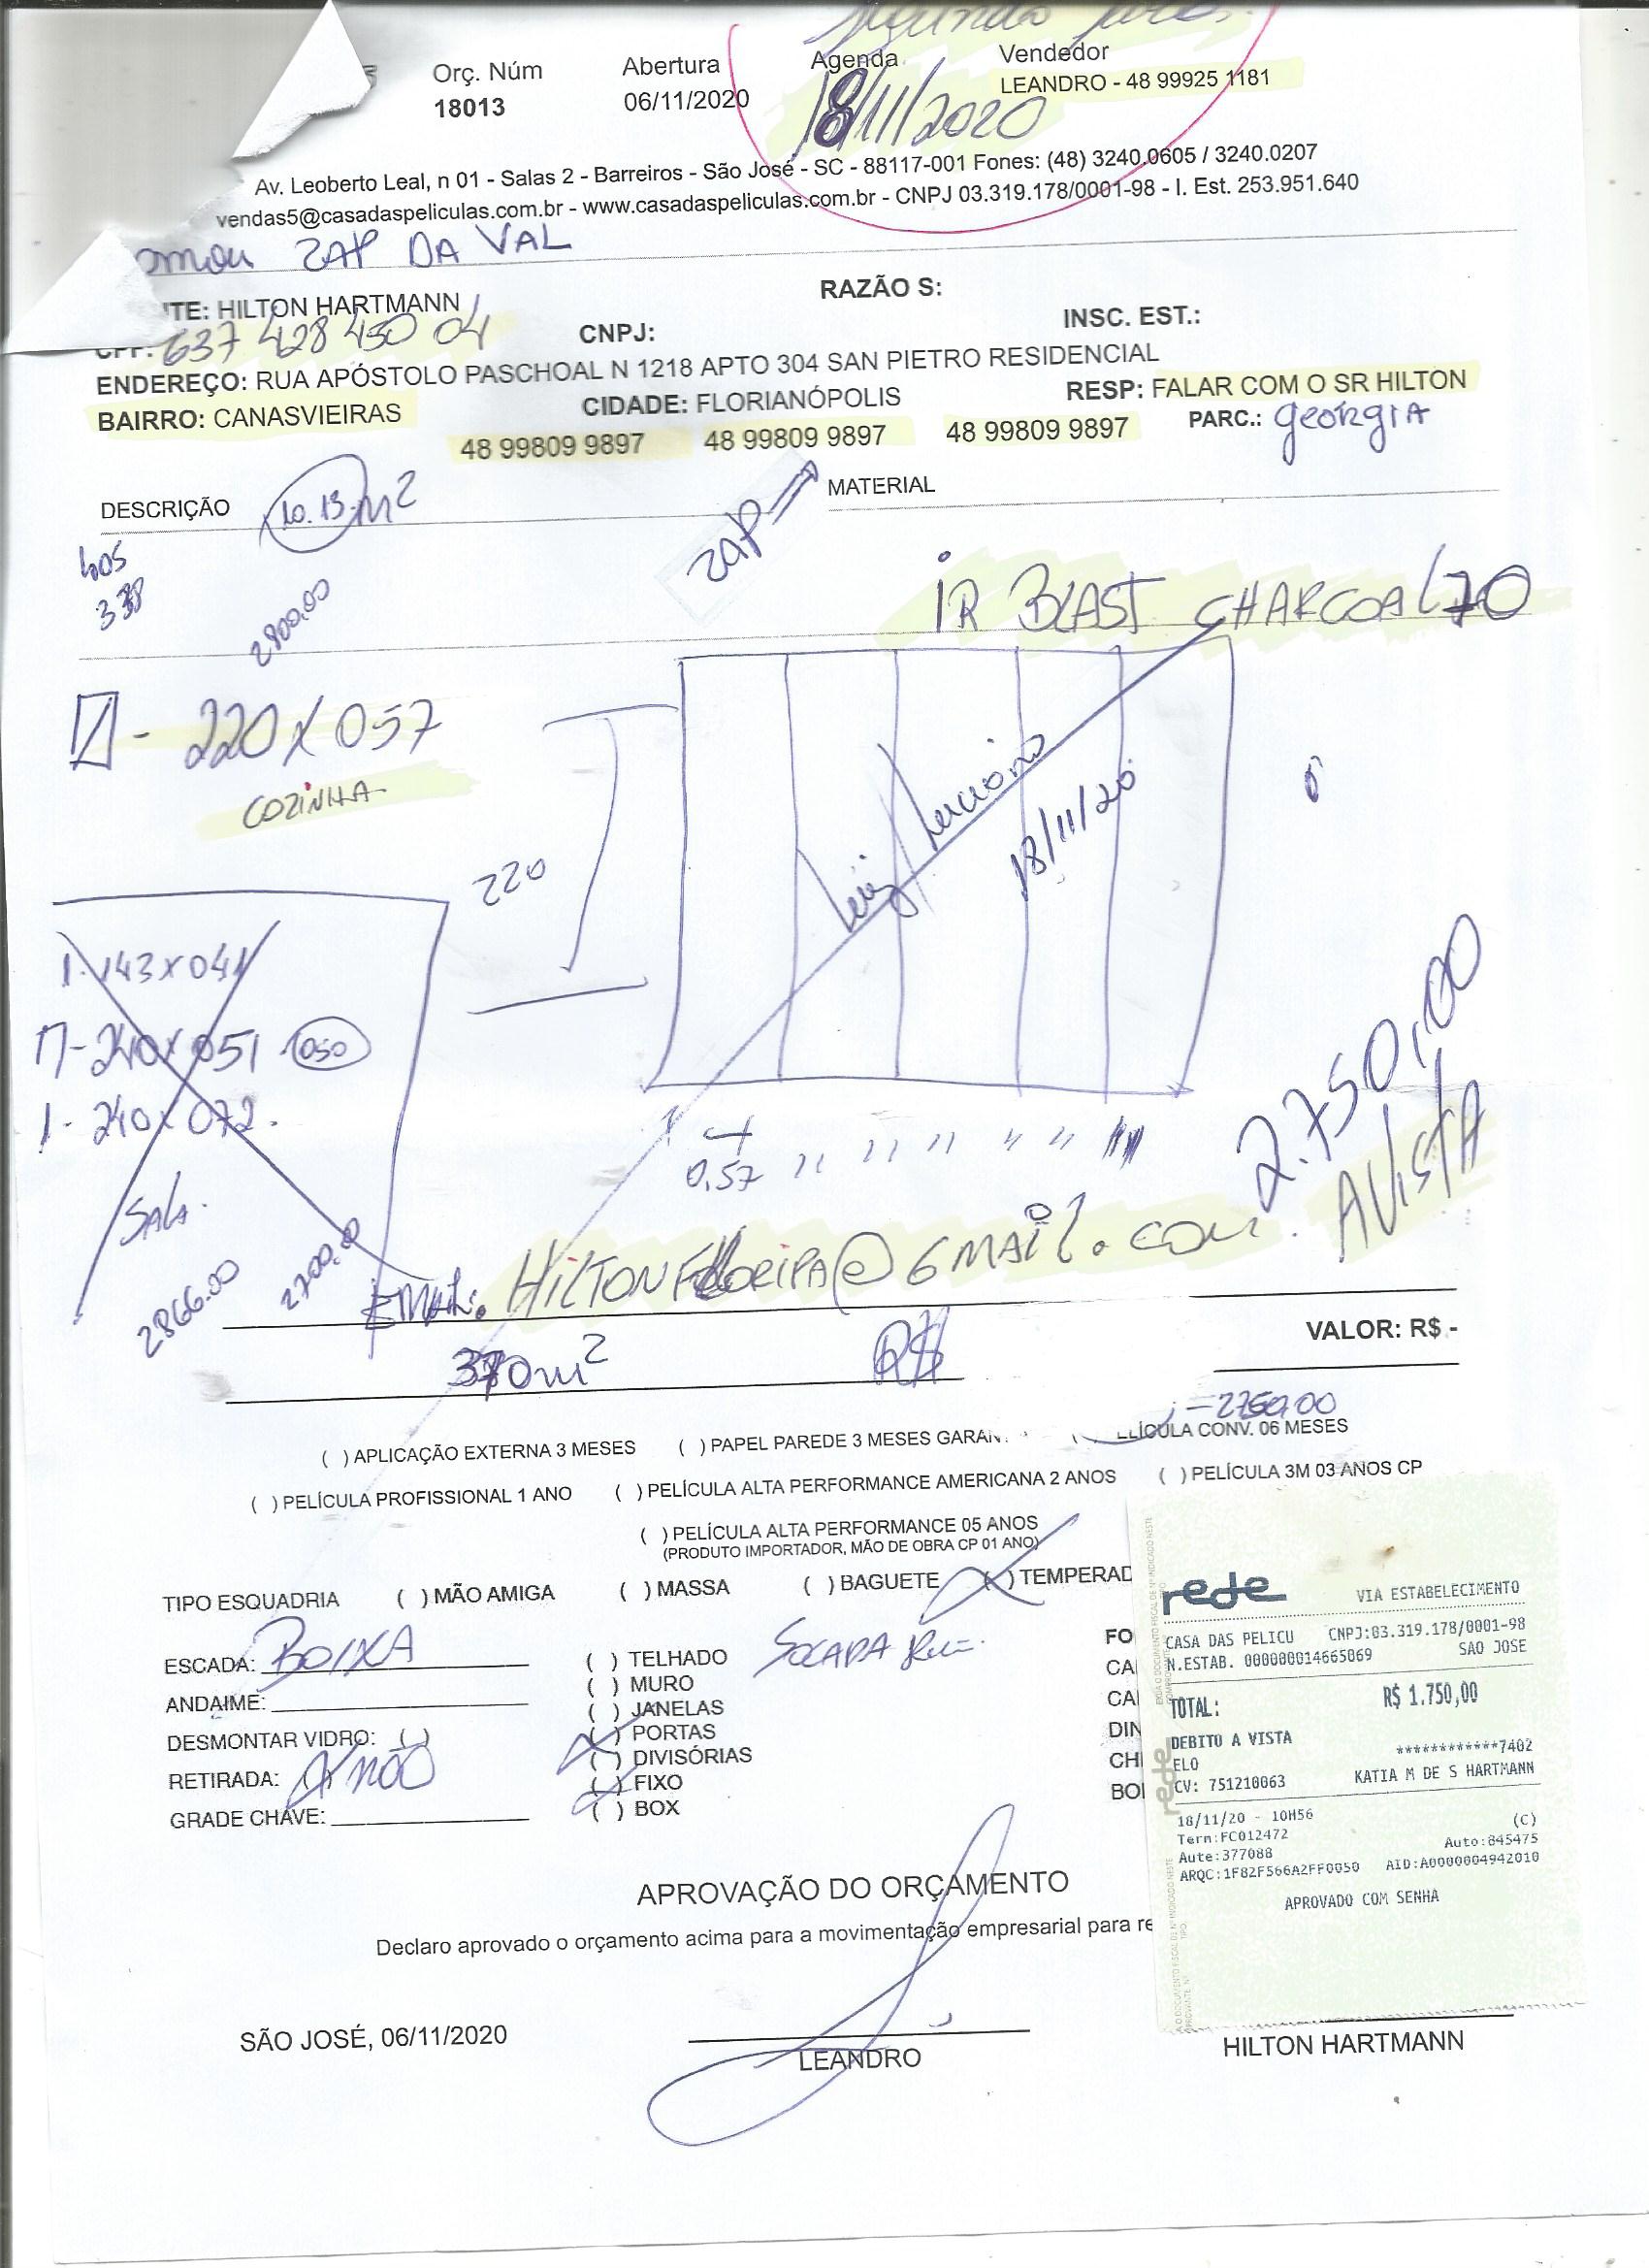 Segunda
Orç. Núm Abertura Agenda Vendedor
18013 06/11/2020 18/11/2020 LEANDRO - 48 99925 1181
Av. Leoberto Leal, n 01 - Salas 2 - Barreiros - São José - SC - 88117-001 Fones: (48) 3240.0605 / 3240.0207
vendas5@casadaspeliculas.com.br - www.casadaspeliculas.com.br - CNPJ 03.319.178/0001-98 - I. Est. 253.951.640
ZAP DA VAL
NTE: HILTON HARTMANN RAZÃO S:
CPF: 637 428 450 04 CNPJ: INSC. EST.:
ENDEREÇO: RUA APÓSTOLO PASCHOAL N 1218 APTO 304 SAN PIETRO RESIDENCIAL
BAIRRO: CANASVIEIRAS CIDADE: FLORIANÓPOLIS RESP: FALAR COM O SR HILTON
48 99809 9897 48 99809 9897 48 99809 9897 PARC.: georgIA
DESCRIÇÃO 10.13 m2 ZAP MATERIAL
405
338
2800,00
IR BLAST CHARCOAL 70
- 220 X 057
COZINHA
220
18/11/20
1- 143 x 041
- 240 x 051 050
1- 240 x 072.
SALA.
0,57 " " " " "
2.750,00
AVISTA
2866.00 2700,00
EMAIL: HILTONFLORIPA@GMAIL.COM.
VALOR: R$ -
370 m2 R$
2750,00
( ) APLICAÇÃO EXTERNA 3 MESES ( ) PAPEL PAREDE 3 MESES GARAN ELÍCULA CONV. 06 MESES
( ) PELÍCULA PROFISSIONAL 1 ANO ( ) PELÍCULA ALTA PERFORMANCE AMERICANA 2 ANOS ( ) PELÍCULA 3M 03 ANOS CP
( ) PELÍCULA ALTA PERFORMANCE 05 ANOS
(PRODUTO IMPORTADOR, MÃO DE OBRA CP 01 ANO)
TIPO ESQUADRIA ( ) MÃO AMIGA ( ) MASSA ( ) BAGUETE ( ) TEMPERAD
ESCADA: BAIXA
ANDAIME:
DESMONTAR VIDRO: ( )
RETIRADA: ( ) NÃO
GRADE CHAVE:
( ) TELHADO
( ) MURO
( ) JANELAS
( ) PORTAS
( ) DIVISÓRIAS
( ) FIXO
( ) BOX
FO
CA
CA
DIN
CH
BO
rede VIA ESTABELECIMENTO
CASA DAS PELICU CNPJ:03.319.178/0001-98
N.ESTAB. 000000014665069 SAO JOSE
TOTAL: R$ 1.750,00
DEBITO A VISTA
ELO ************7402
CV: 751210063 KATIA M DE S HARTMANN
18/11/20 - 10H56 (C)
Term:FC012472 Auto:845475
Aute:377088
ARQC:1F82F566A2FF0050 AID:A0000004942010
APROVADO COM SENHA
rede
APROVAÇÃO DO ORÇAMENTO
Declaro aprovado o orçamento acima para a movimentação empresarial para re
SÃO JOSÉ, 06/11/2020
LEANDRO
HILTON HARTMANN